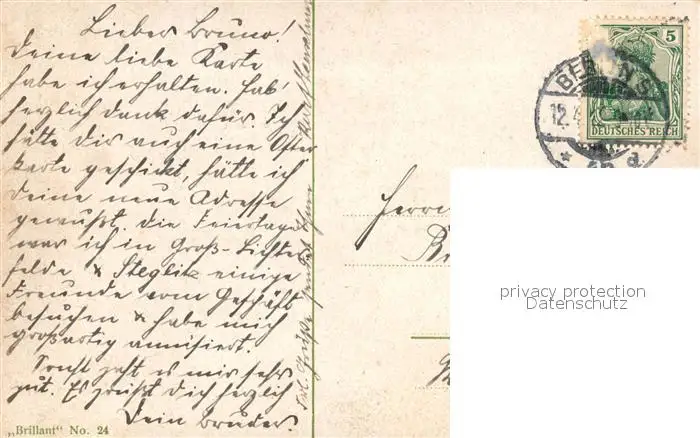 Lieber Bruno!
Deine liebe Karte
habe ich erhalten. Hab'
herzlich Dank dafür. Ich
hätte Dir auch eine Oster
karte geschickt, hätte ich
Deine neue Adresse
gewußt. Die Feiertage
war ich in Groß-Lichter
felde & Steglitz einige
Freunde vom Geschäft
besuchen & habe mich
großartig amüsiert.
Sonst geht es mir sehr
gut. Es grüßt Dich herzlich
Dein Bruder.
„Brillant" No. 24
Grüße sendet
5
BERLIN S
12.4
DEUTSCHES REICH
d
Herrn
privacy protection
Datenschutz